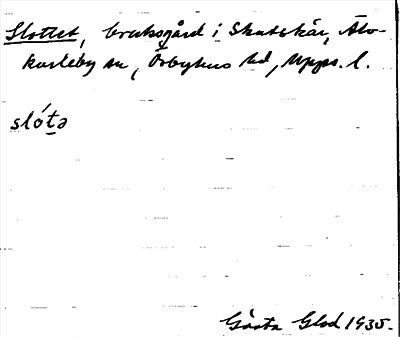 Slottet, bruksgård i Skutskär, Älv-
karleby sn, Örbyhus hd, Upps. l.
slót̠ə
Gösta Glad 1935.